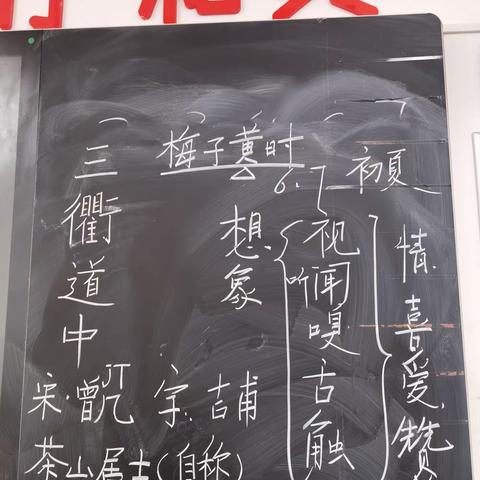 三衢道中
梅子黄时
6.7
初夏
想象
视听闻嗅舌触
情喜爱赞
宋·曾几 字:吉甫
茶山居士(自称)